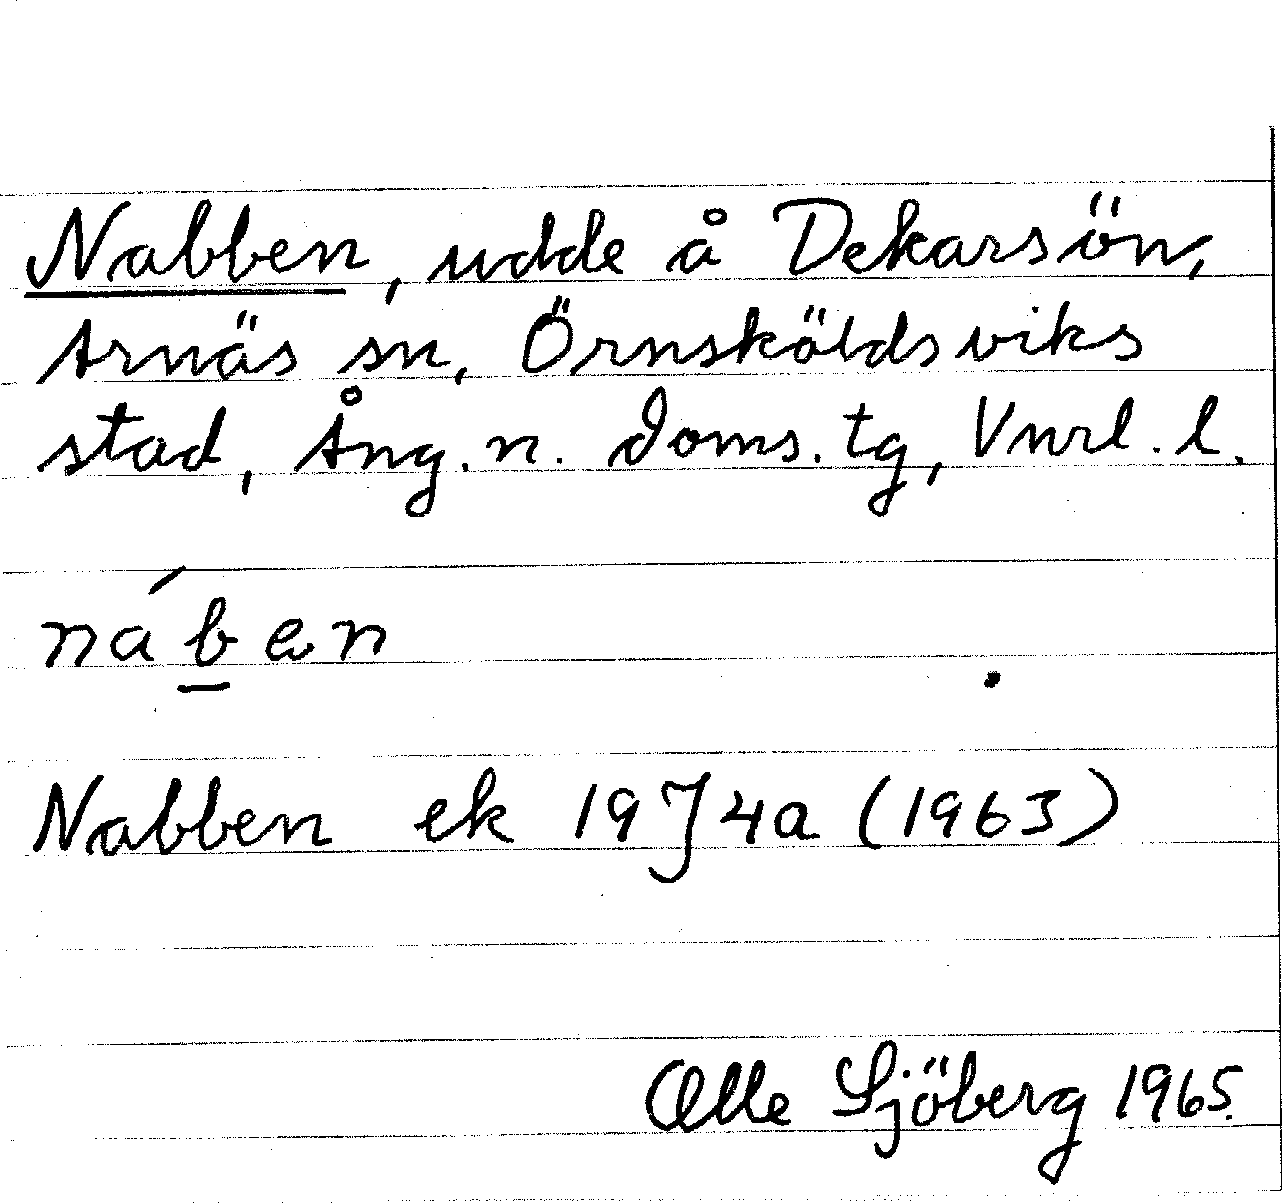 Nabben, udde å Dekarsön,
Arnäs sn, Örnsköldsviks
stad, Ång. n. doms. tg, Vnrl. l.
náb̲en
Nabben ek 19 J 4a (1963)
Olle Sjöberg 1965.